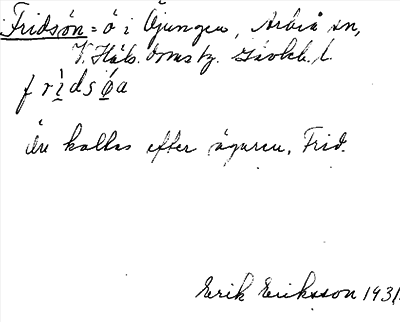 Fridsön = ö i Öjungen, Arbrå sn,
V. Häls. Doms.
frìdsø̀a
Ön kallas efter ägaren, Frid.
Erik Eriksson 1931.